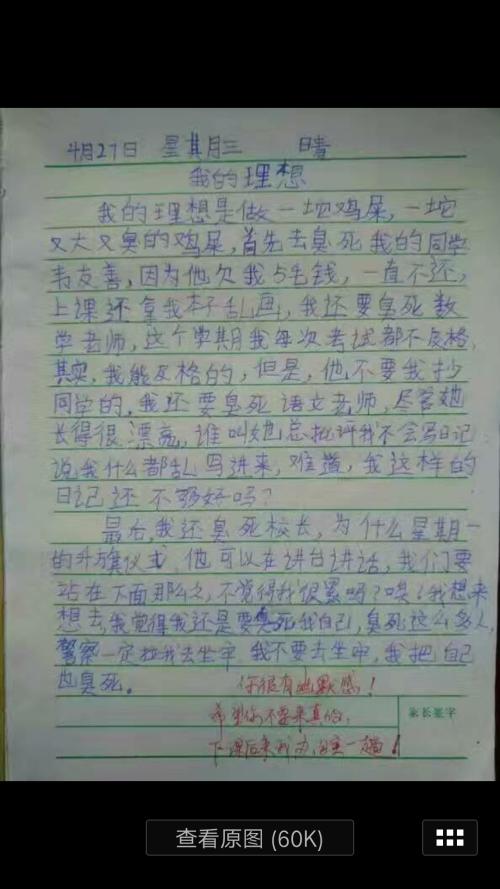 4月27日 星期三 晴
我的理想
我的理想是做一坨鸡屎,一坨
又大又臭的鸡屎,首先去臭死我的同学
韦友善,因为他欠我5毛钱,一直不还,
上课还拿我本子乱画,我还要臭死数
学老师,这个学期我每次考试都不及格,
其实,我能及格的,但是,他不要我抄
同学的,我还要臭死语文老师,尽管她
长得很漂亮,谁叫她总批评我不会写日记
说我什么都乱写进来,难道,我这样的
日记还不够好吗?
最后,我还臭死校长,为什么星期一
的升旗仪式,他可以在讲台讲话,我们要
站在下面那么久,不觉得我很累吗?唉!我想来
想去,我觉得我还是要臭死我自己,臭死这么多人,
警察一定拉我去坐牢,我不要去坐牢,我把自己
也臭死。
你很有幽默感!
希望你不要来真的,
下课后来我办公室一趟!
家长签字
查看原图 (60K)